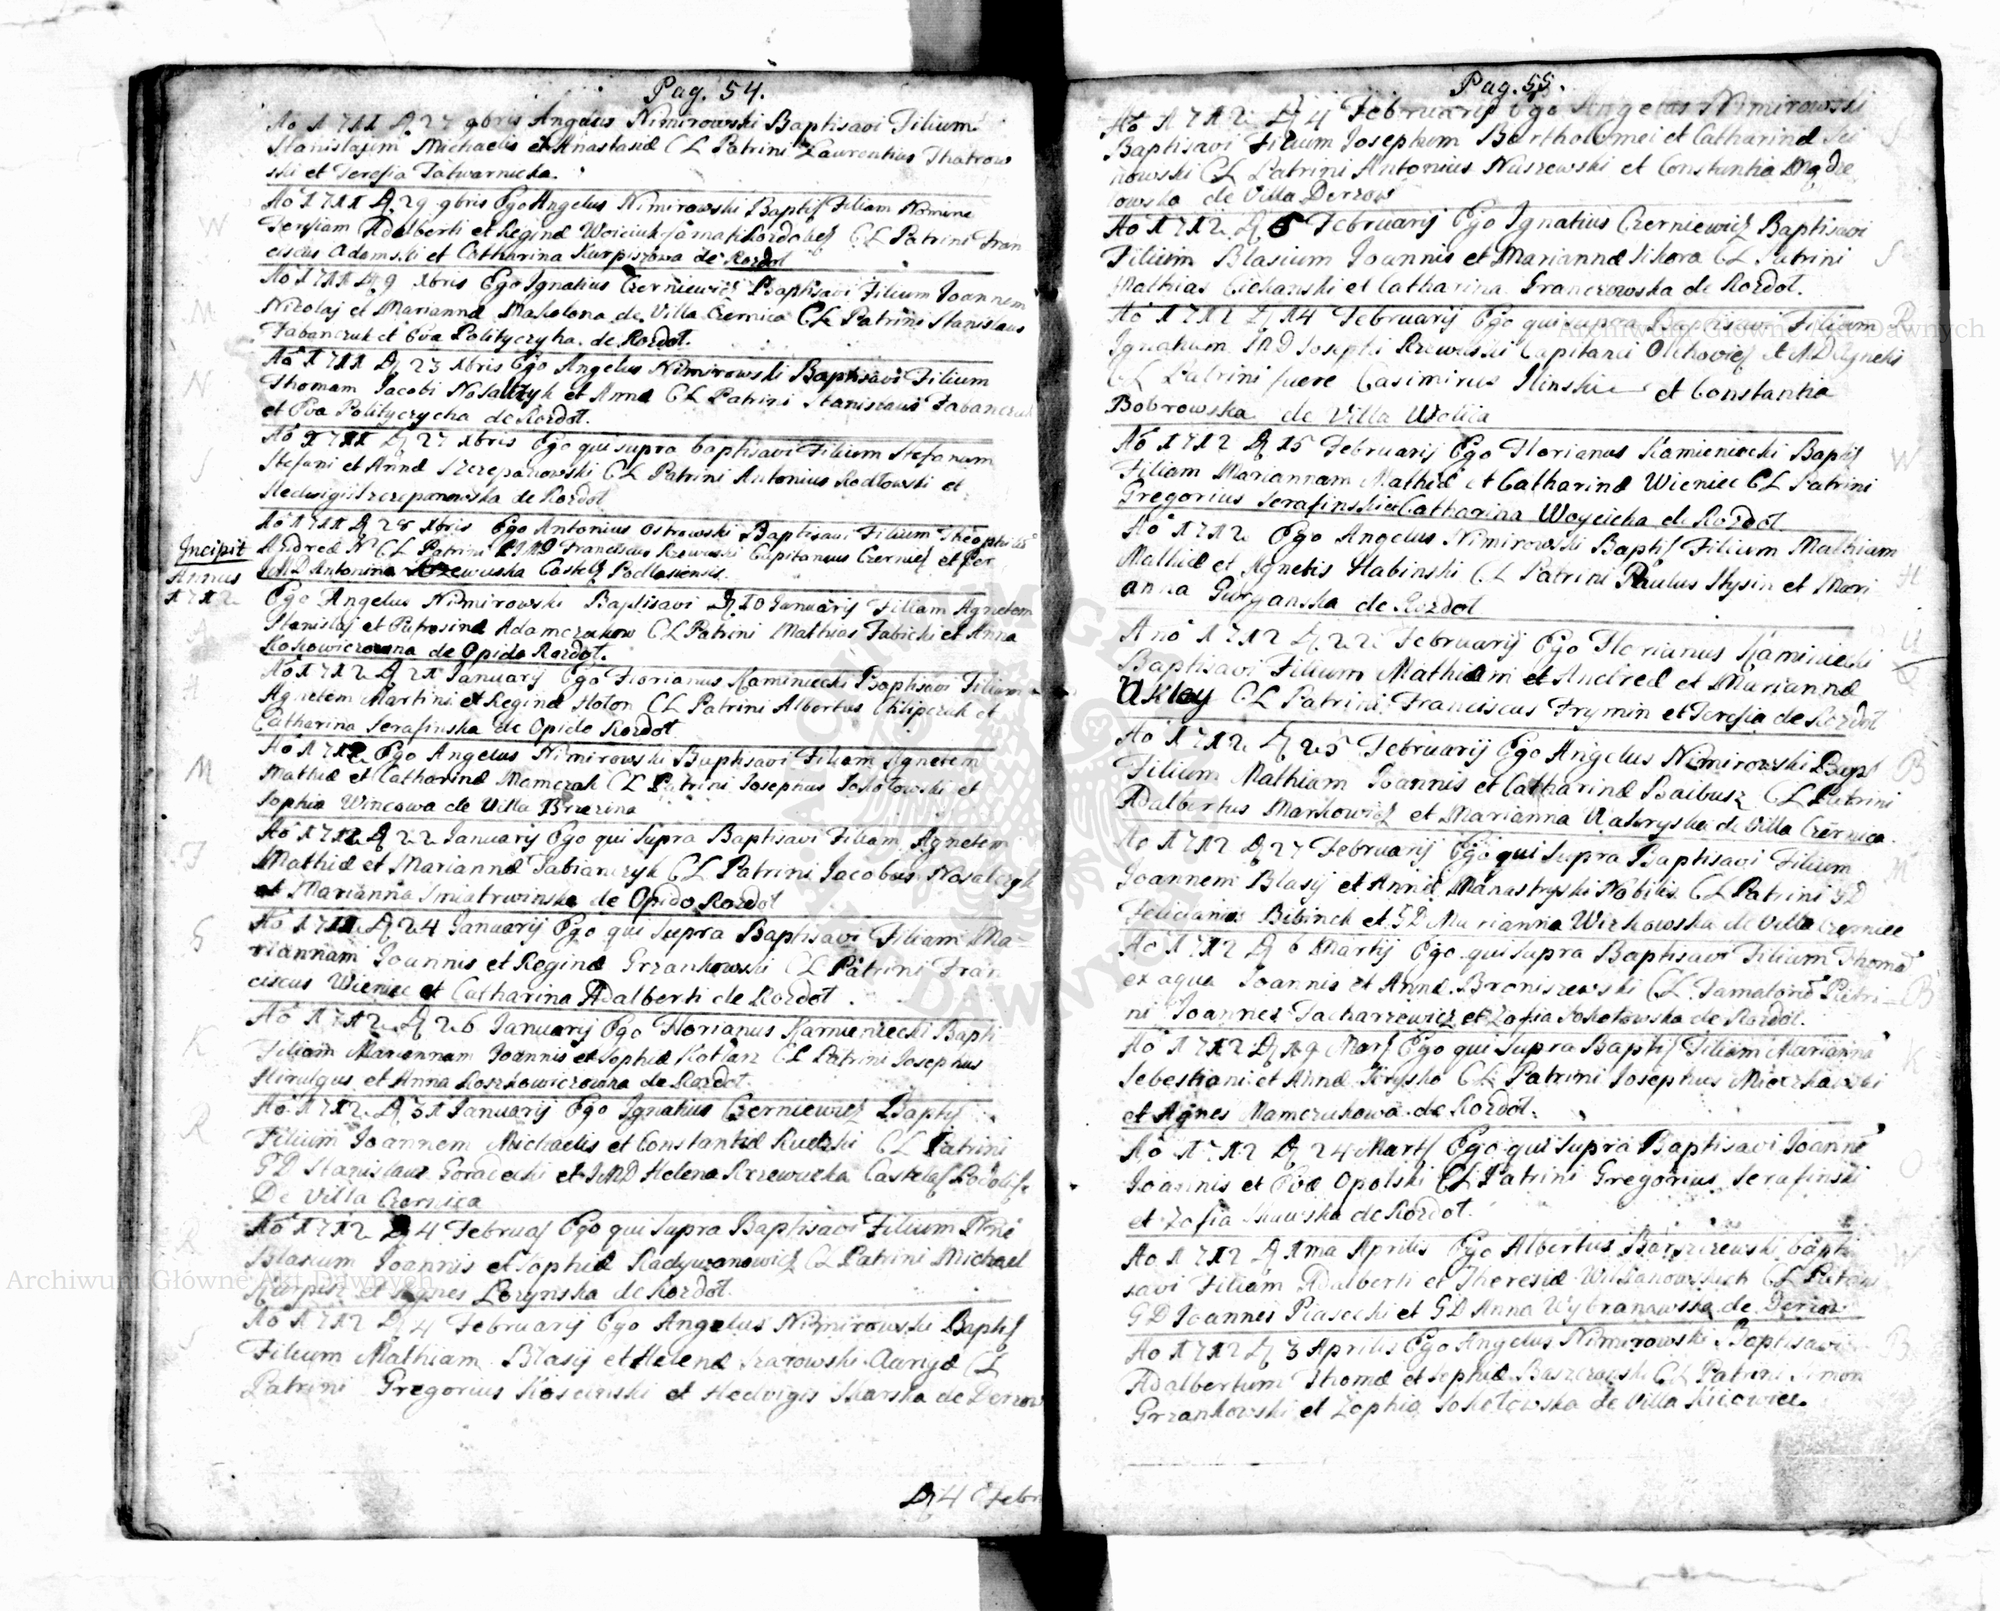 Pag. 54.
Ao 1711 Dj 27 9bris Angelus Nimirowski Baptisavi Filium
Stanislaum Michaelis et Anastasiæ CL Patrini Laurentius Thatrow
ski et Teresia Tatwarnicka.
Ao 1711 Dj 29 9bris Ego Angelus Nimirowski Baptis Filiam Nomine
Teresiam Adalberti et Reginæ CL Patrini Fran
ciscus Adamski et Catharina Kurpiszowa de Rozdot
Ao 1711 Dj 9 Xbris Ego Ignatius Czerniewicz Baptisavi Filium Joannem
Nicolaj et Mariannæ Makolona de Villa Czernica CL Patrini Stanislaus
Fabanczuk et Eva Politycyha de Rozdot.
Ao 1711 Dj 23 Xbris Ego Angelus Nimirowski Baptisavi Filium
Thomam Jacobi Nosalczyk et Annæ CL Patrini Stanislaus Fabanczuk
et Eva Politycrycha de Rozdot.
Ao 1711 Dj 27 Xbris Ego qui supra baptisavi Filium Stefanum
Stefani et Annæ Szczepanowski CL Patrini Antonius Rodtowski et
Hedwigis Szczepanowska de Rozdot
Ao 1711 Dj 28 Xbris Ego Antonius Ostrowski Baptisavi Filium Theophilu
Incipit Andreæ N CL Patrini Franciscus Rzewuski Capitaneus Czernies et
Annus Antonina Rzewuska Castel Podlasiensis.
1712 Ego Angelus Nimirowski Baptisavi Dj 10 Januarij Filiam Agnetem
A Stanislaj et Eufrosinæ Adamczukow CL Patrini Mathias Fabicki et Anna
Koskowiczowna de Opido Rozdot.
H Ao 1712 Dj 21 January Ego Florianus Kaminiecki Baptisavi Filiam
Agnetem Martini et Reginæ Hoton CL Patrini Albertus Philipczuk et
Catharina Serafinska de Opido Rozdot
Ao 1712 Ego Angelus Nimirowski Baptisavi Filiam Agnetem
M Mathiæ et Catharinæ Mamczak CL Patrini Josephus Sokotowski et
Sophia Wincowa de Villa Brzezina
Ao 1712 Dj 22 January Ego qui supra Baptisavi Filiam Agnetem
F Mathiæ et Mariannæ Fabianczyk CL Patrini Jacobus Nosalczyk
et Marianna Smiatrwinska de Opido Rozdot
Ao 1712 Dj 24 Januarij Ego qui supra Baptisavi Filiam Ma-
G riannam Joannis et Reginæ Grzankowski CL Patrini Fran
ciscus Wieniec et Catharina Adalberti de Rozdot.
Ao 1712 Dj 26 Januarij Ego Florianus Kamieniecki Bapti
K Filiam Mariannam Joannis et Sophiæ Kotlarz CL Patrini Josephus
Hirulgus et Anna Koszkowiczowna de Rozdot.
Ao 1712 Dj 31 Januarij Ego Ignatius Czerniewicz Baptis
R Filium Joannem Michaelis et Constantiæ Rudzki CL Patrini
GD Stanislaus Goradecki et Helena Rzewuzka Castelas
De Villa Czernica
Ao 1712 Dj 4 Februas Ego qui supra Baptisavi Filium Nne
R Blasium Joannis et Sophiæ Radywonowicz CL Patrini Michael
Kurpisz et Agnes Lozynska de Rozdot.
Ao 1712 Dj 4 Februarij Ego Angelus Nimirowski Baptis
S Filium Mathiam Blasij et Helenæ Szarowski CL
Patrini Gregorius Koscinski et Hedvigis Skarska de Derzow
Dj 4 Febr
Pag. 55.
Ao 1712 Dj 4 Februarij Ego Angelus Nimirowski
Baptisavi Filium Josephum Bartholomei et Catharinæ
nowski CL Patrini Antonius Naszewski et Constantia
towska de Villa Derzow
Ao 1712 Dj 6 Februarij Ego Ignatius Czerniewicz Baptisavi
Filium Blasium Joannis et Mariannæ Sikora CL Patrini
Mathias Cichanski et Catharina Granczowska de Rozdot.
Ao 1712 Dj 14 Februarij Ego qui supra Baptisavi Filium
Ignatium Josephi Rzewuski Capitanei
CL Patrini fuere Casimirus Ilinski et Constantia
Bobrowska de Villa Wolica
Ao 1712 Dj 15 Februarij Ego Florianus Kamieniecki Baptis
Filiam Mariannam Mathiæ et Catharinæ Wieniec CL Patrini
Gregorius Serafinski et Catharina Woycicha de Rozdot
Ao 1712 Ego Angelus Nimirowski Baptis Filium Mathiam
Mathiæ et Agnetis Habinski CL Patrini Paulus Stysin et Mari
anna Guryanska de Rozdot
Ano 1712 Dj 22 Februarij Ego Florianus Kaminiecki
Baptisavi Filium Mathiam et Andreæ et Mariannæ
Ukley CL Patrini Franciscus Frymin et Teresia de Rozdot
Ao 1712 Dj 25 Februarij Ego Angelus Nimirowski Bapt
Filium Mathiam Joannis et Catharinæ Baibusz CL Patrini
Adalbertus Markowicz et Marianna de Villa Czernica.
Ao 1712 Dj 27 Februarij Ego qui supra Baptisavi Filium
Joannem Blasij et Annæ Manastryski Nobilis CL Patrini GD
Felicianus Bibinck et GD Marianna Wirzkowska de Villa Czerniec
Ao 1712 Dj 6 Martij Ego qui supra Baptisavi Filium Thomam
ex aqua Joannis et Annæ Broniszewski CL Patri-
ni Joannes Tacharzewicz et Zofia Sokotowska de Rozdot.
Ao 1712 Dj 19 Mars Ego qui supra Baptis Filiam Mariannã
Sebestiani et Annæ Krysko CL Patrini Josephus
et Agnes Mamczukowa de Rozdot.
Ao 1712 Dj 24 Marts Ego qui supra Baptisavi Joanne
Joannis et Evæ Opolski CL Patrini Gregorius Serafinski
et Zofia de Rozdot.
Ao 1712 Dj 1ma Aprilis Ego Albertus Barszczewski bapti
savi Filiam Adalberti et Theresiæ CL Patrini
GD Joannes Piasecki et GD Anna Wybranowska de Derzow
Ao 1712 Dj 3 Aprilis Ego Angelus Nimirowski Baptisavi
Adalbertum Thomæ et Sophiæ CL Patrini Simon
Grzankowski et Zophia Sokotowska de Villa Kiiowiec.
Archiwum Główne Akt Dawnych
Archiwum Główne Akt Dawnych